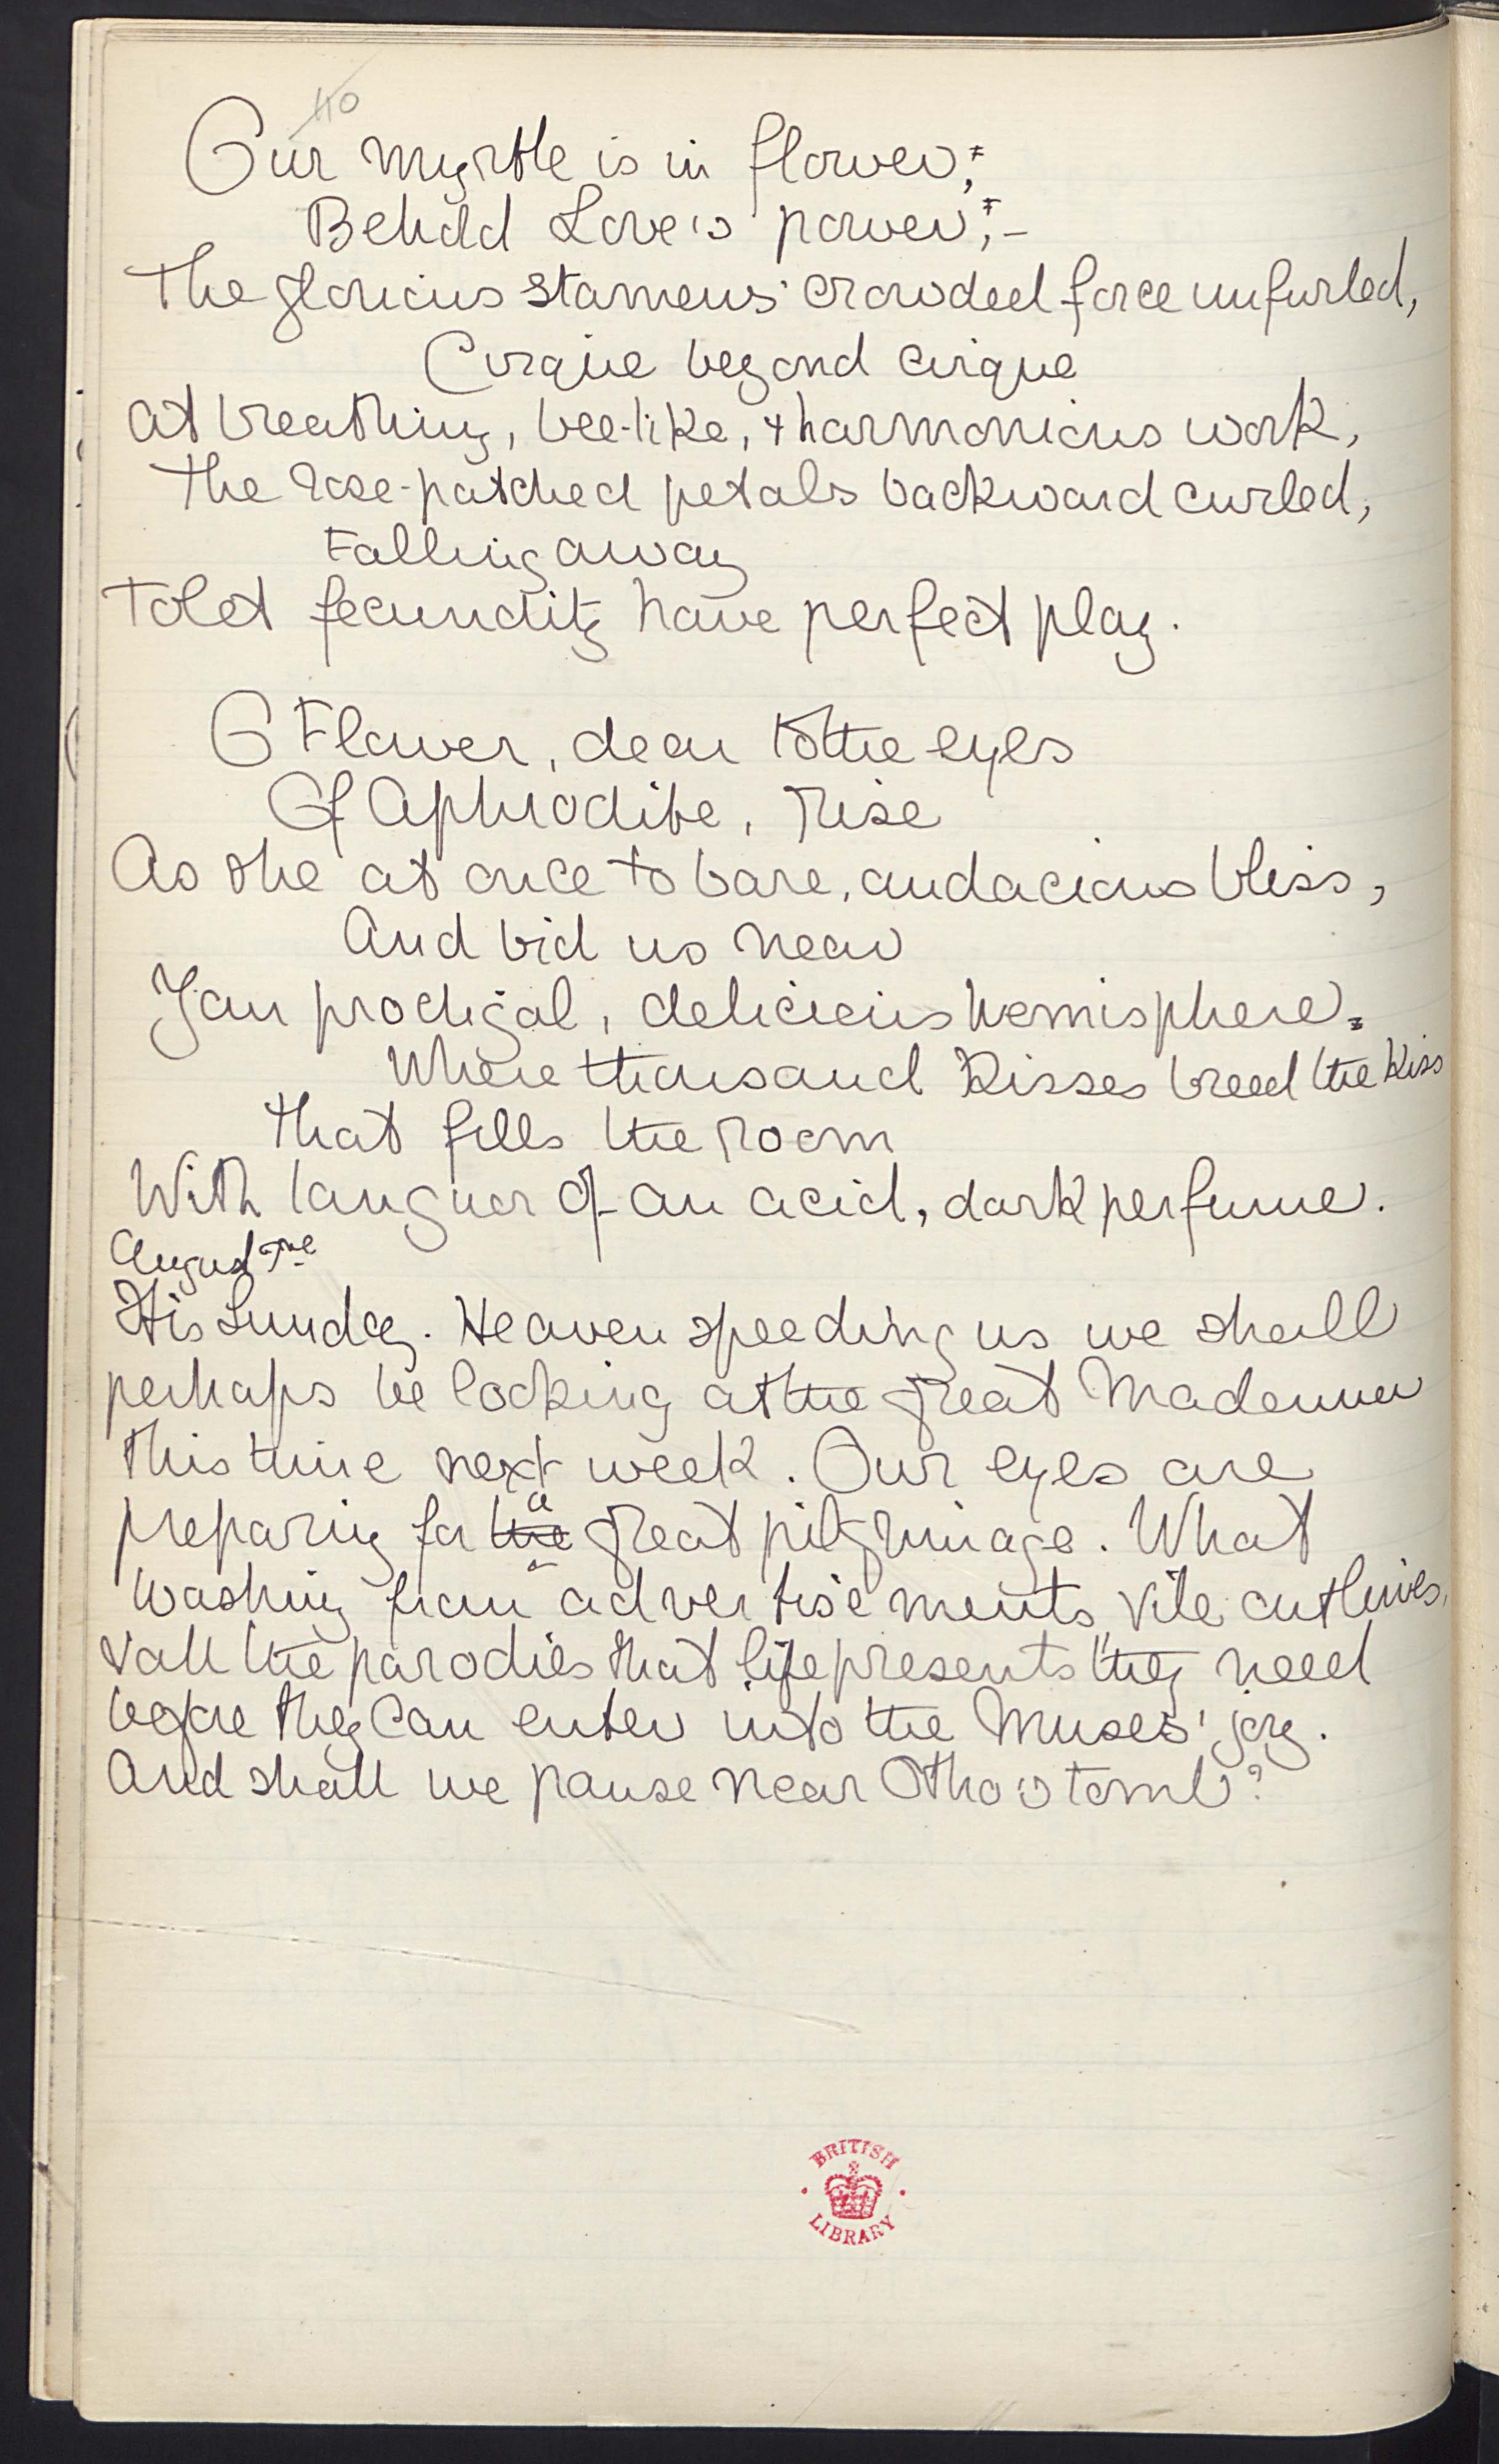 110
Our myrtle is in flower;
Behold Love's power;-
The glorious stamens' crowded force unfurled,
Cirque beyond cirque
At breathing, bee-like, & harmonious work,
The rose-patched petals backward curled,
Falling away
To let fecundity have perfect play.
O Flower, dear to the eyes
Of Aphrodite, rise
As she at once to bare, audacious bliss,
And bid us near
Your prodigal, delicious hemisphere,
Where thousand kisses breed the kiss
That fills the room
With languor of an acid, dark perfume.
August
It is Sunday. Heaven speeding us we shall
perhaps be looking at the great Madonna
this time next week. Our eyes are
a
preparing for the great pilgrimage. What
washing from advertisements, vile outlines,
& all the parodies that life presents they need
before they can enter into the Muses' joy.
And shall we pause near Otho's tomb?
BRITISH
LIBRARY